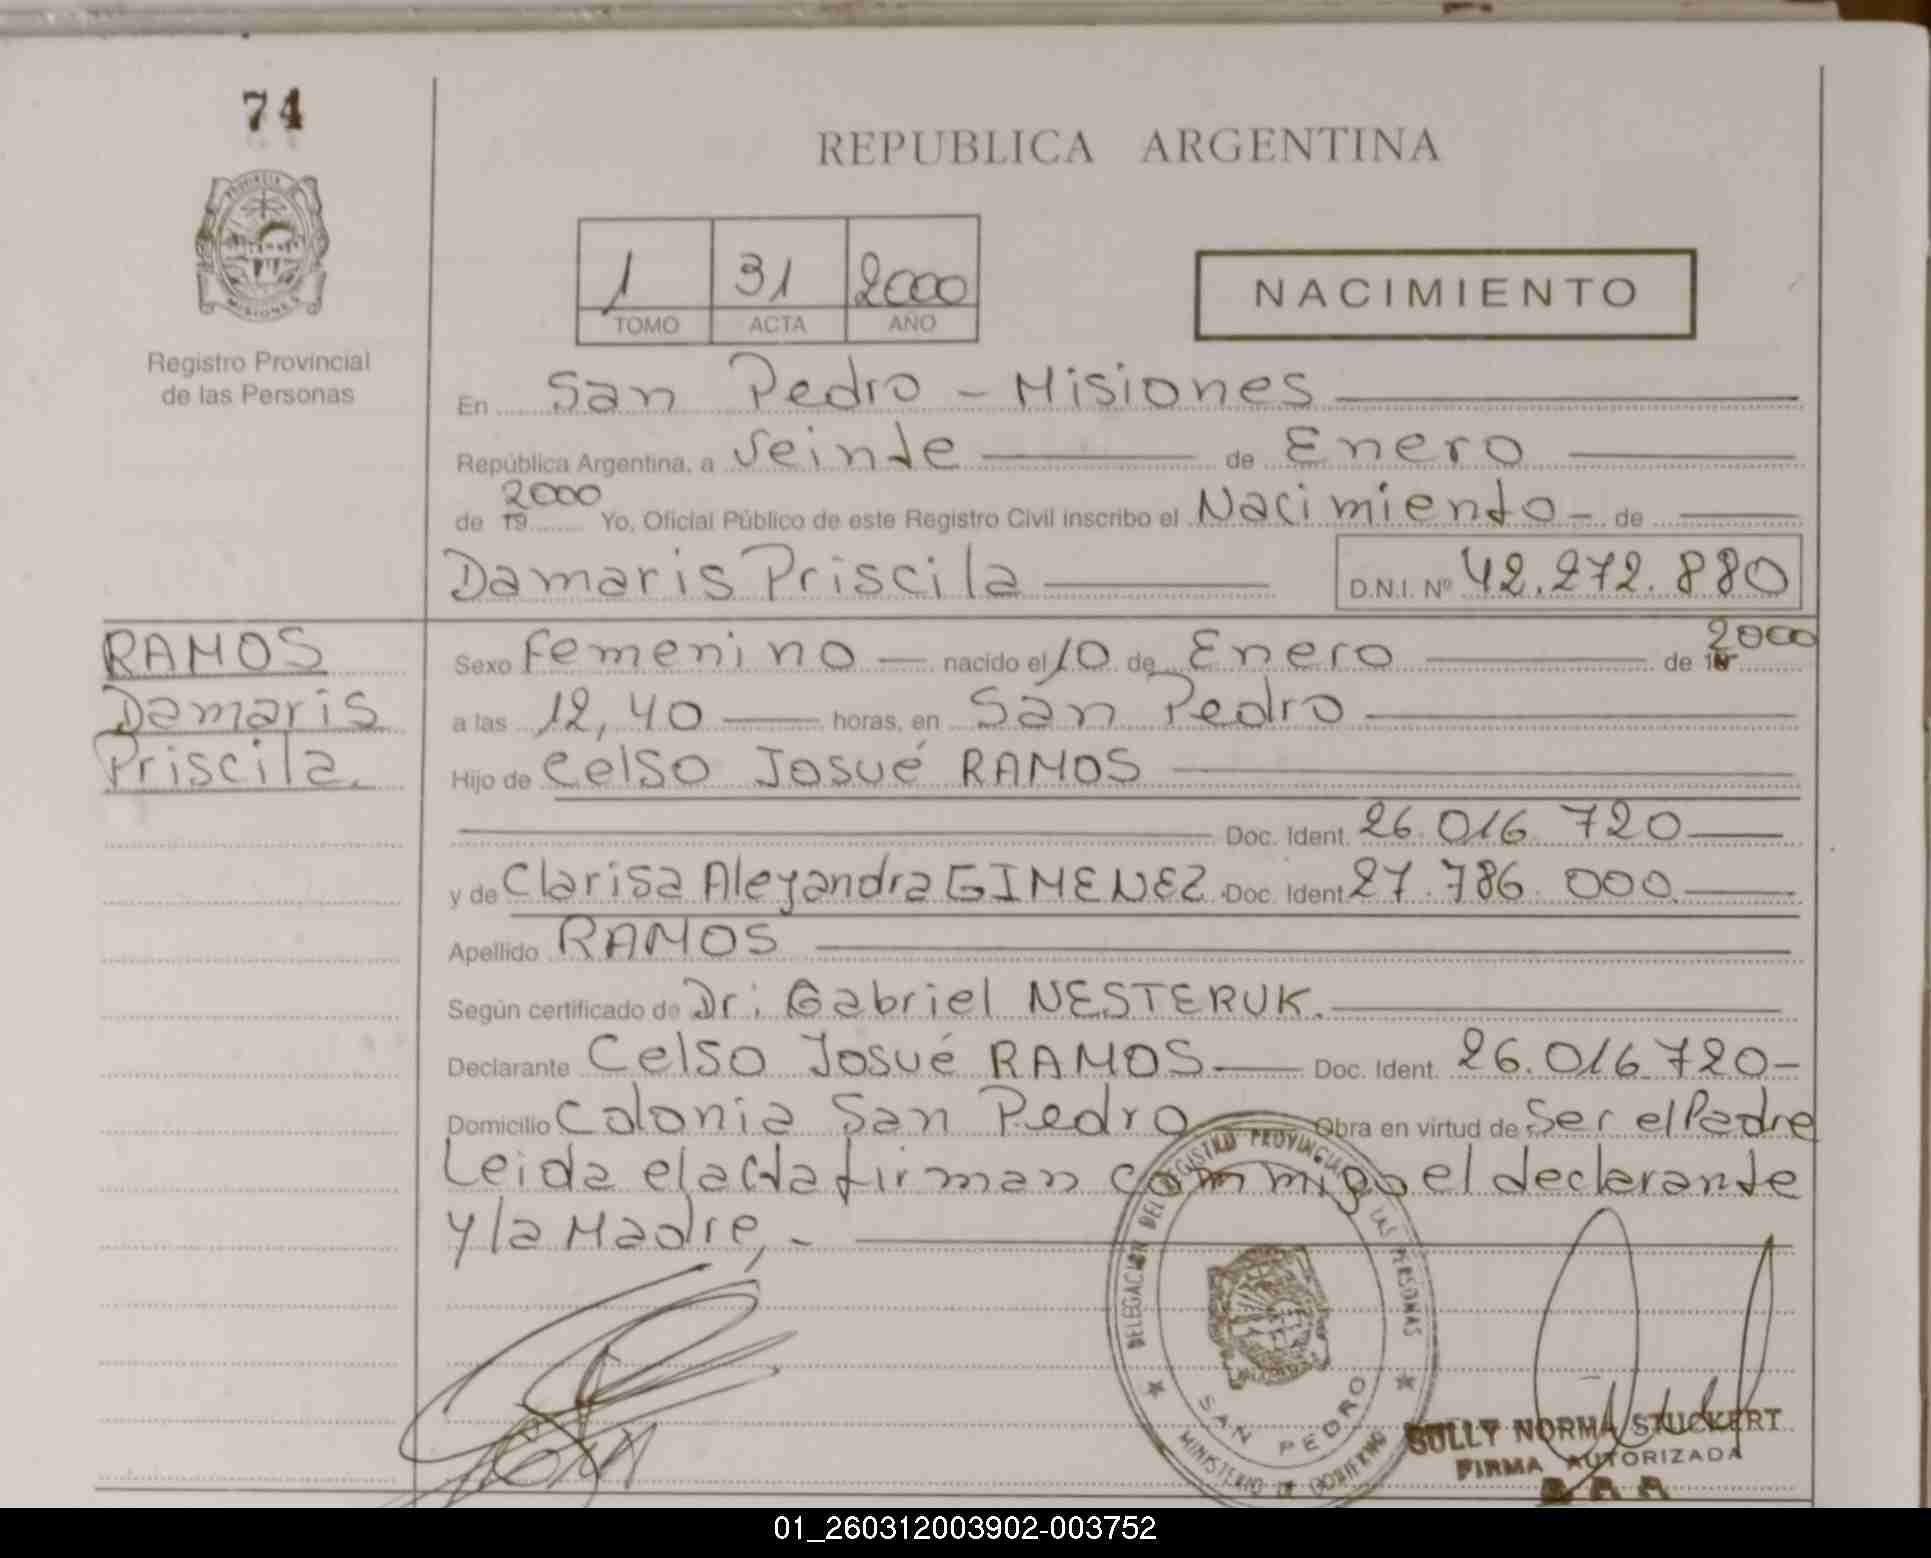 74
REPUBLICA ARGENTINA
PROVINCIA DE
MISIONES
Registro Provincial
de las Personas
1 31 2000
TOMO ACTA AÑO
NACIMIENTO
En San Pedro - Misiones
República Argentina, a veinte de Enero
2000
de 19 Yo, Oficial Público de este Registro Civil inscribo el Nacimiento - de
Damaris Priscila D.N.I. Nº 42.272.880
RAMOS
Damaris
Priscila.
2000
Sexo Femenino nacido el 10 de Enero de 19
a las 12,40 horas, en San Pedro
Hijo de Celso Josué RAMOS
Doc. Ident. 26.016.720
y de Clarisa Aleyandra GIMENEZ Doc. Ident 27.786.000
Apellido RAMOS
Según certificado de Dr: Gabriel NESTERUK.
Declarante Celso Josué RAMOS Doc. Ident. 26.016.720-
Domicilio Colonia San Pedro Obra en virtud de Ser el Padre
Leida el acta firman conmigo el declarante
y la Madre,-
DELEGACION DEL REGISTRO PROVINCIAL DE LAS PERSONAS
SAN PEDRO
MINISTERIO DE GOBIERNO
SULLY NORMA STUCKERT
FIRMA AUTORIZADA
01_260312003902-003752